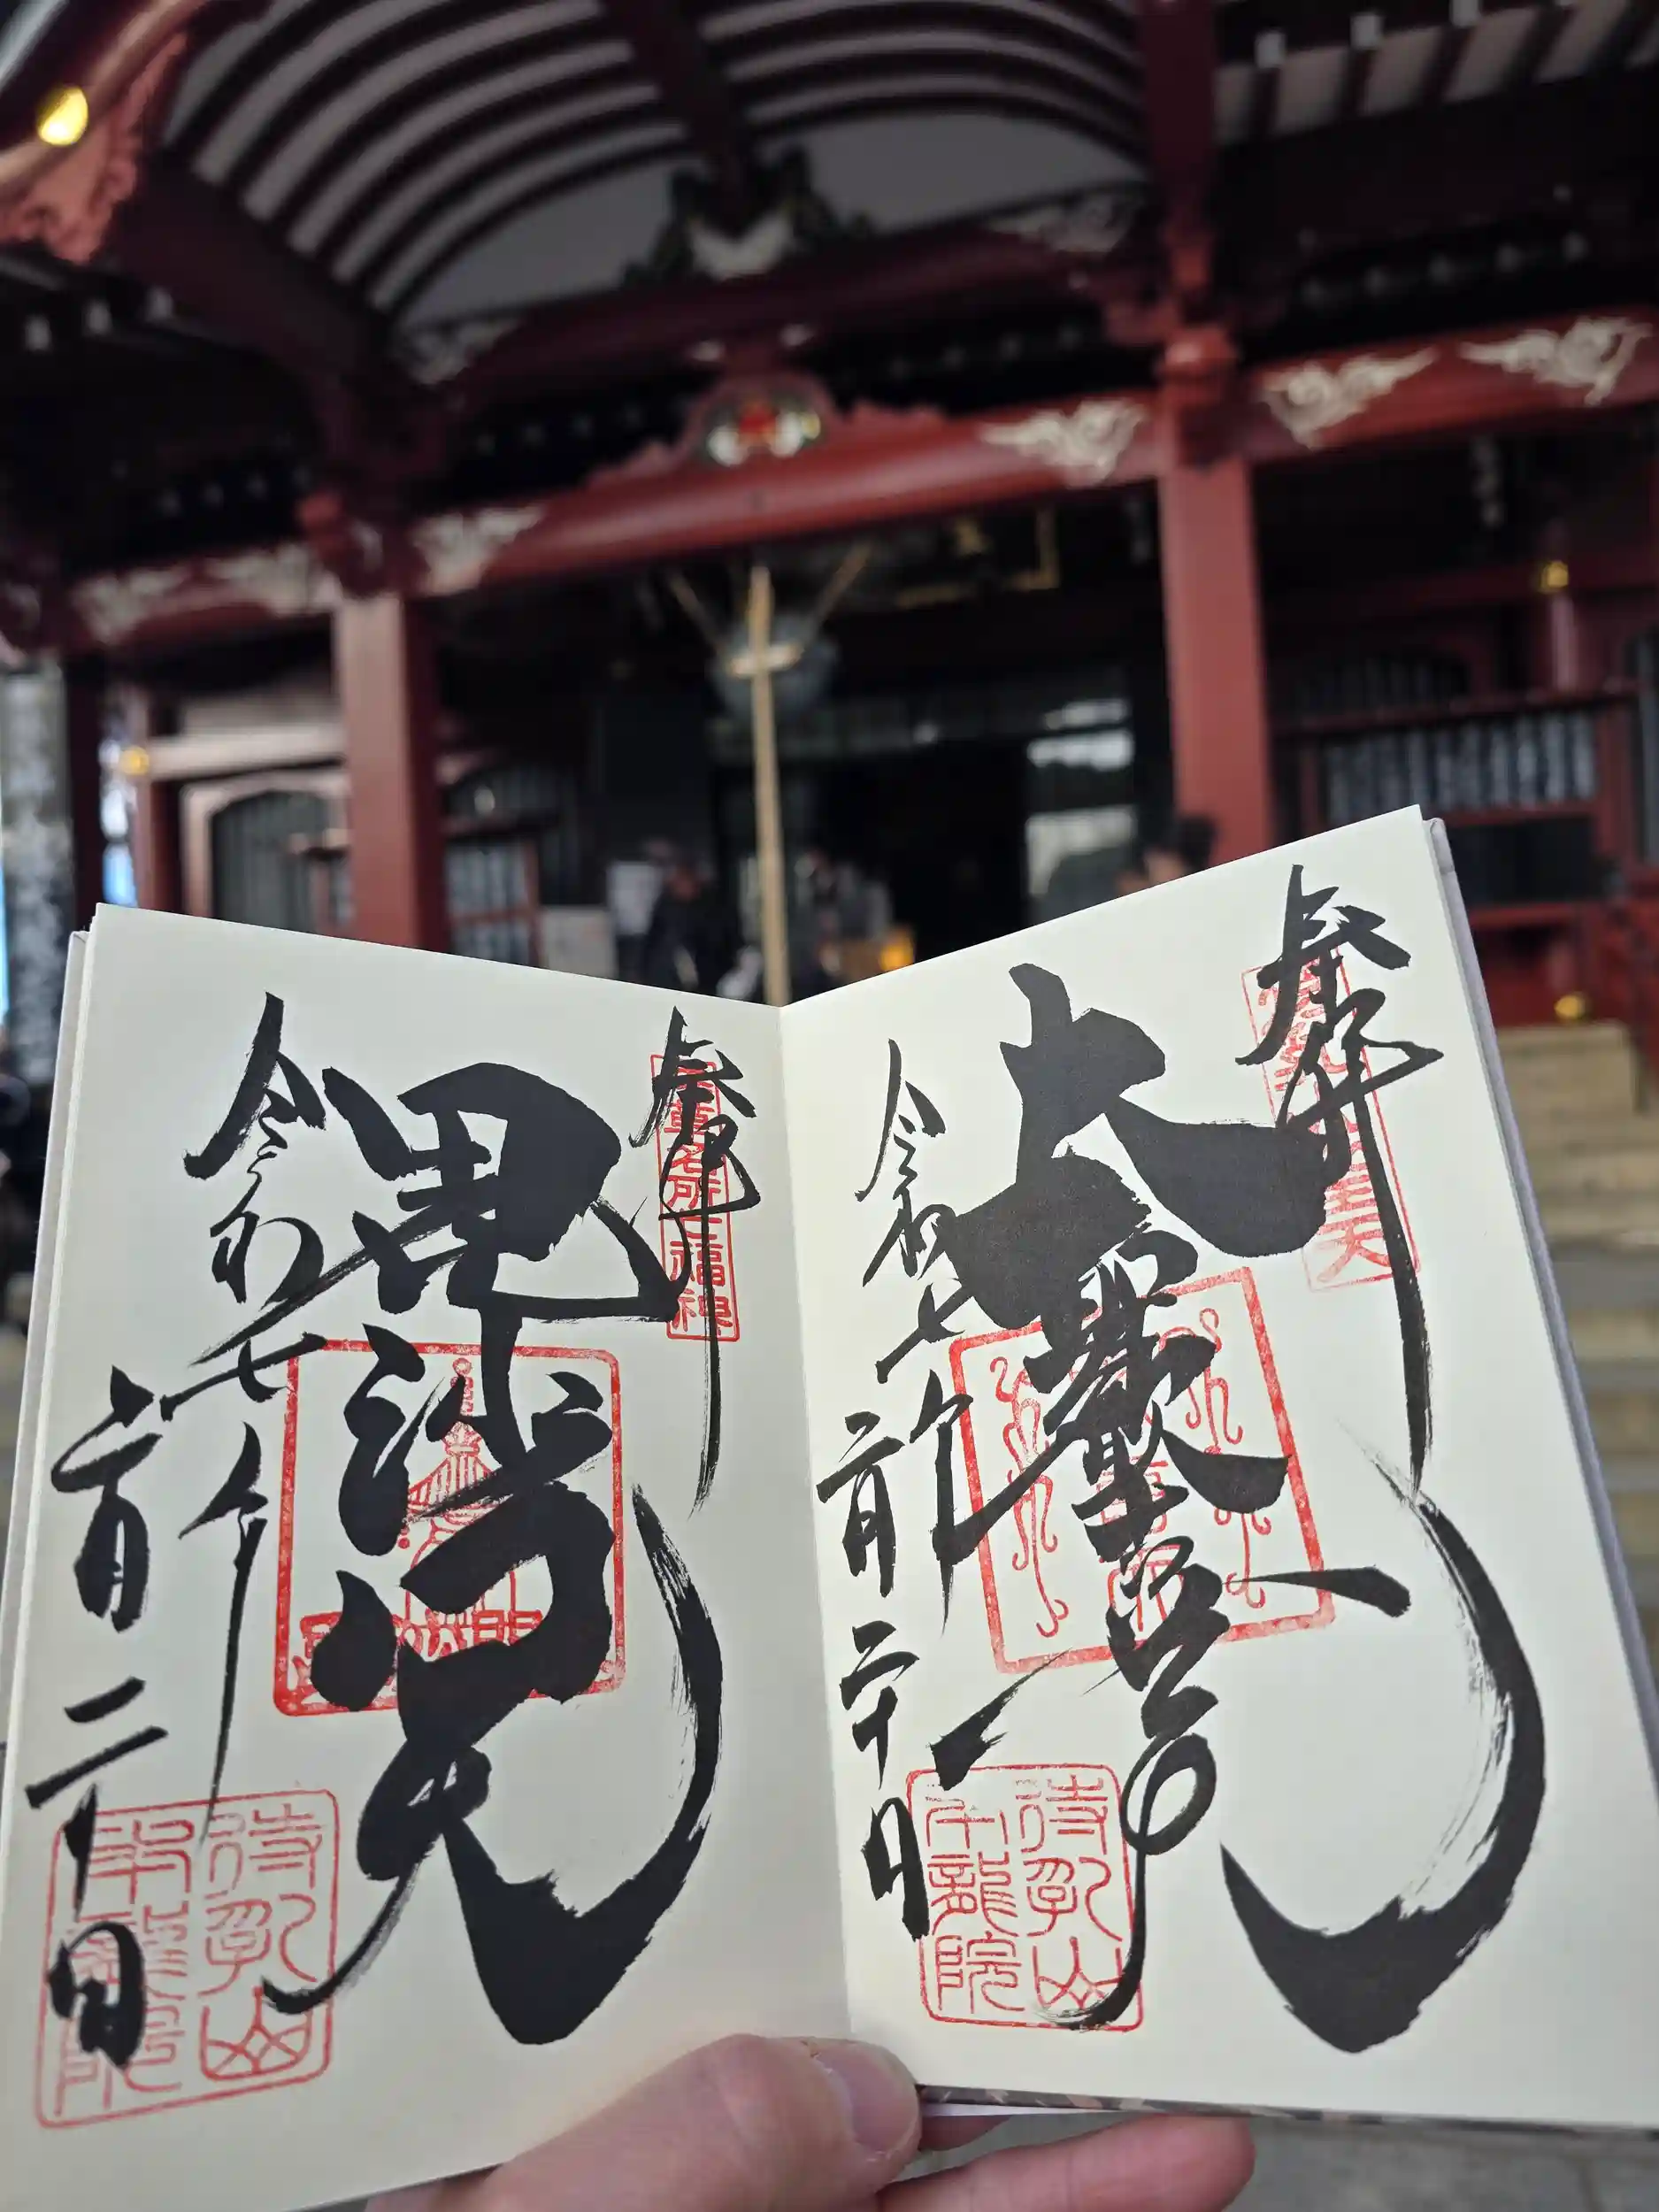 奉拝
大聖歓喜天
令和七年
二月二十日
待乳山
本龍院
奉拝
浅草名所七福神
毘沙門天
令和七年
二月二十日
待乳山
本龍院